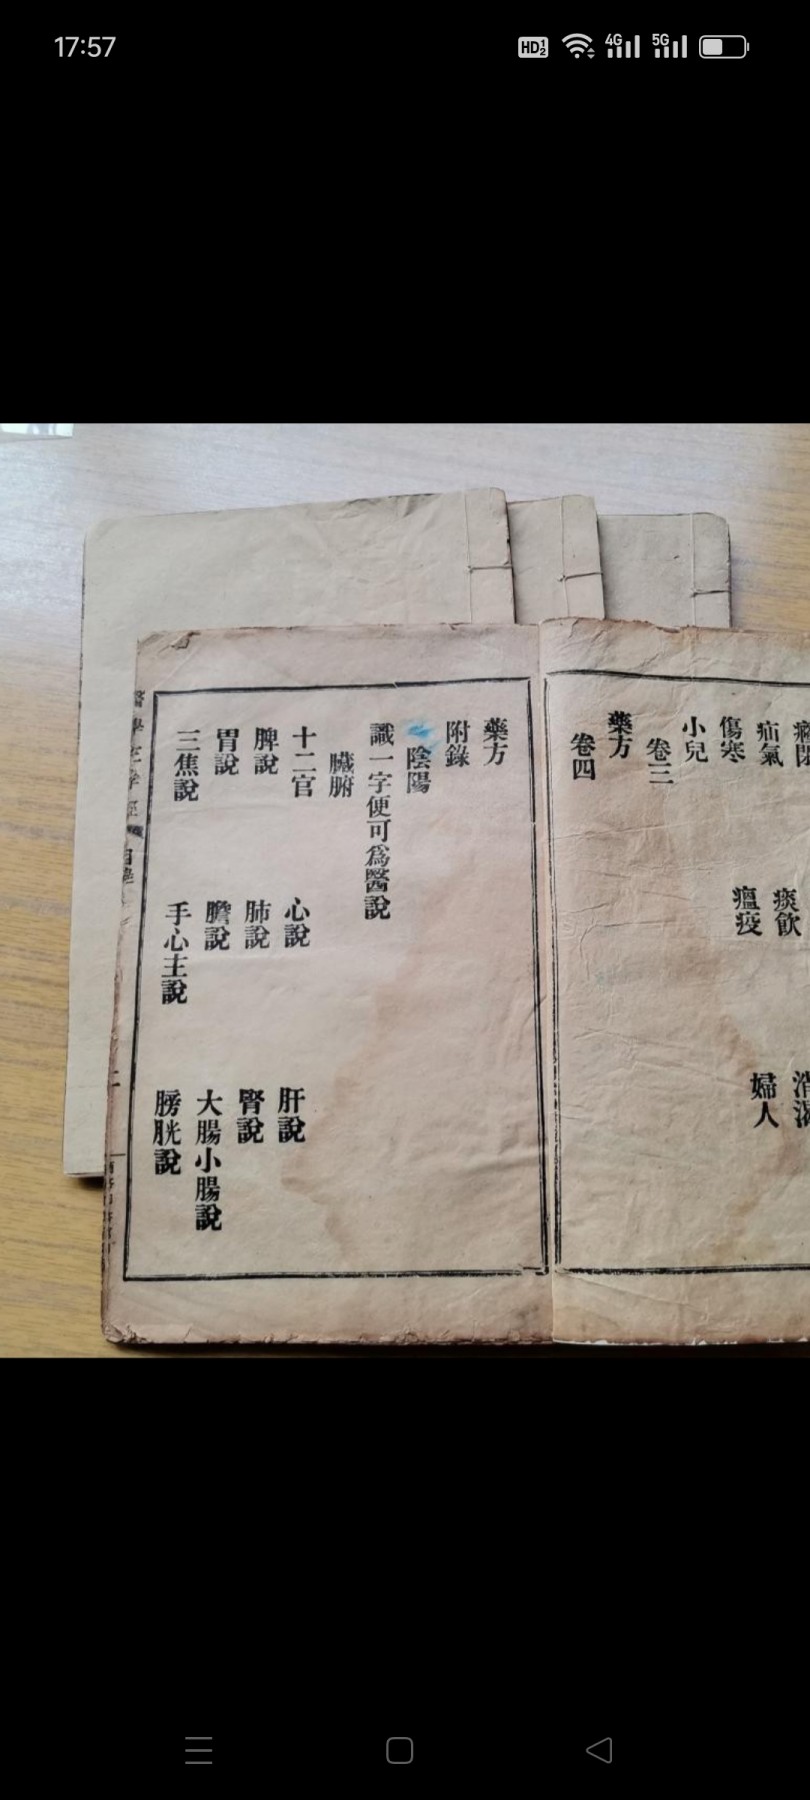 癃閉
疝氣 痰飲 消渴
傷寒 瘟疫 婦人
小兒
卷三
藥方
卷四
藥方
附錄
陰陽
識一字便可為醫說
臟腑
十二官 心說 肝說
脾說 肺說 腎說
胃說 膽說 大腸小腸說
三焦說 手心主說 膀胱說
醫學三字經 目錄 二
17:57
HD 4G 5G